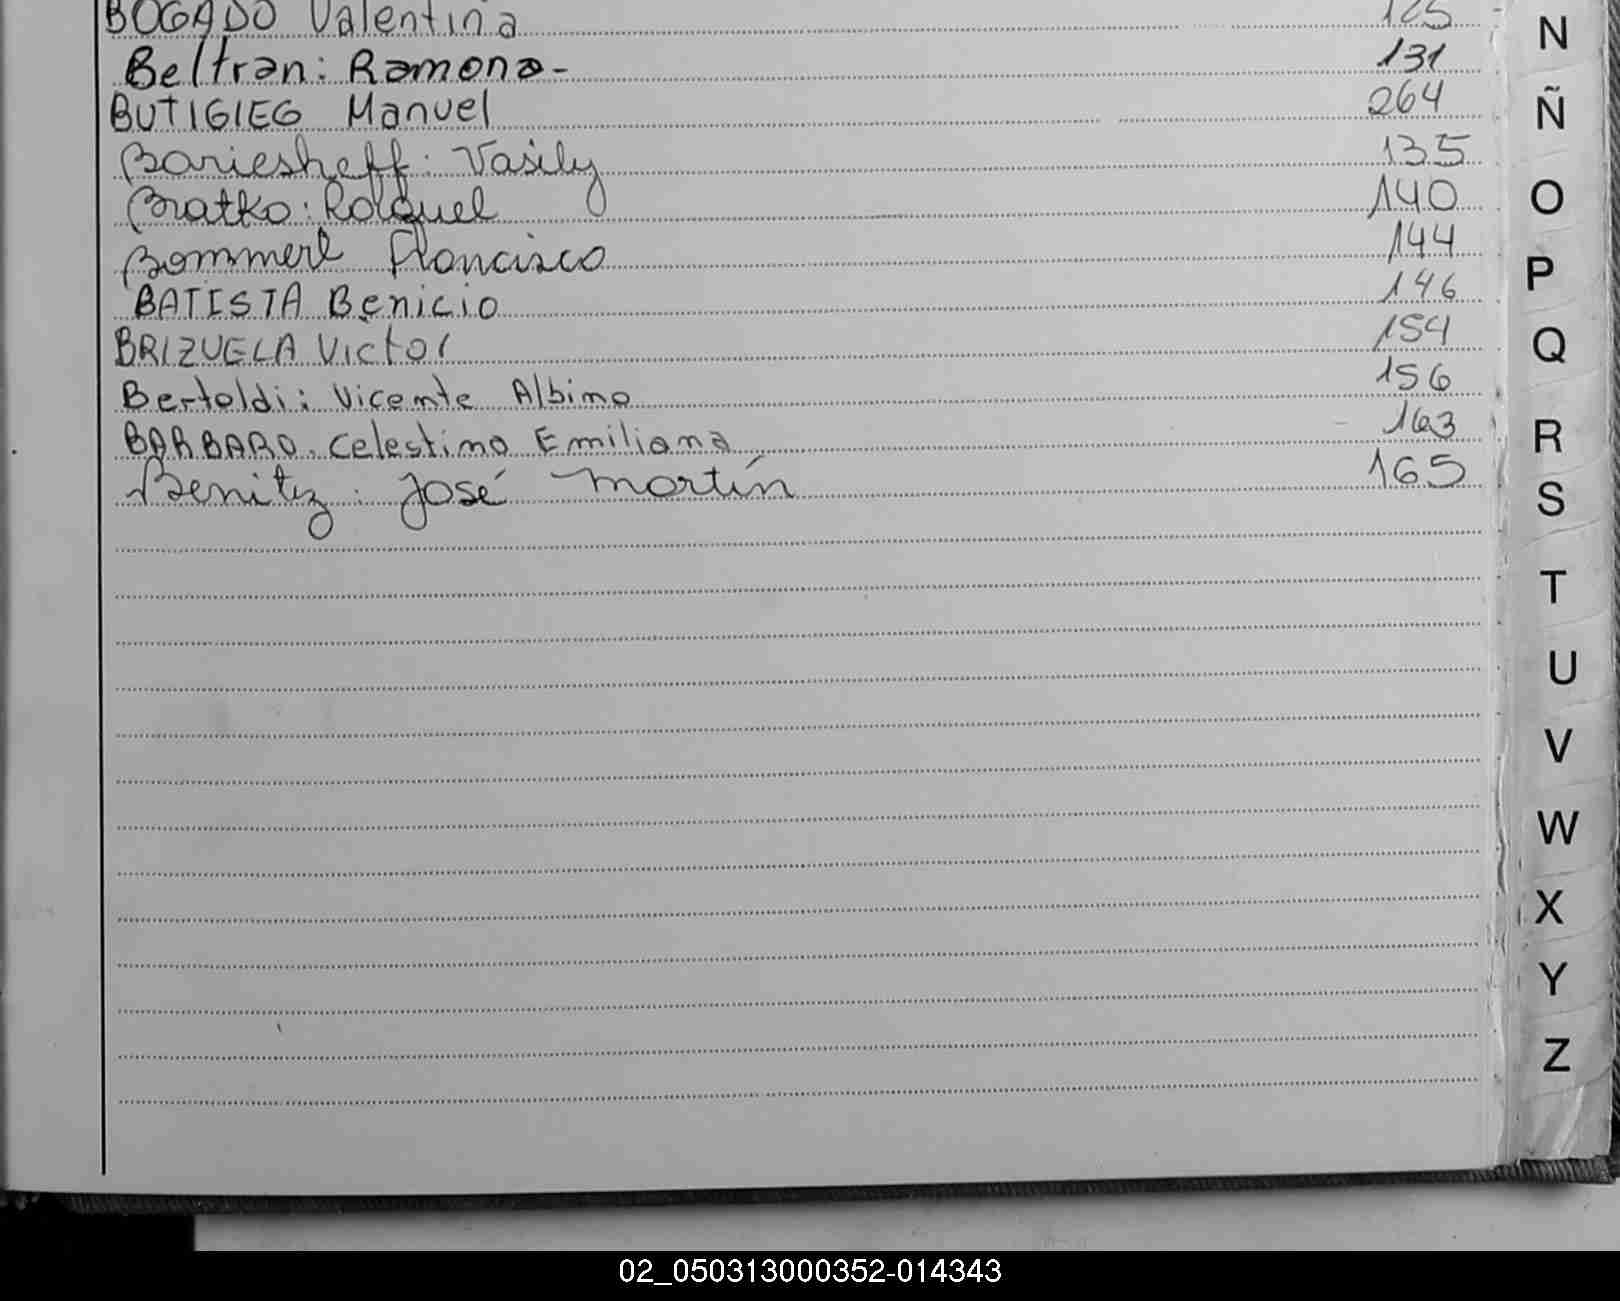 BOGADO Valentina 125
Beltran: Ramona- 131
BUTIGIEG Manuel 264
Bariesheff: Vasily 135
Bratko: Raquel 140
Bommerl Francisco 144
BATISTA Benicio 146
BRIZUELA Victor 154
Bertoldi: Vicente Albino 156
BARBARO. Celestino Emiliana 163
Benitez: José Martín 165
N
Ñ
O
P
Q
R
S
T
U
V
W
X
Y
Z
02_050313000352-014343